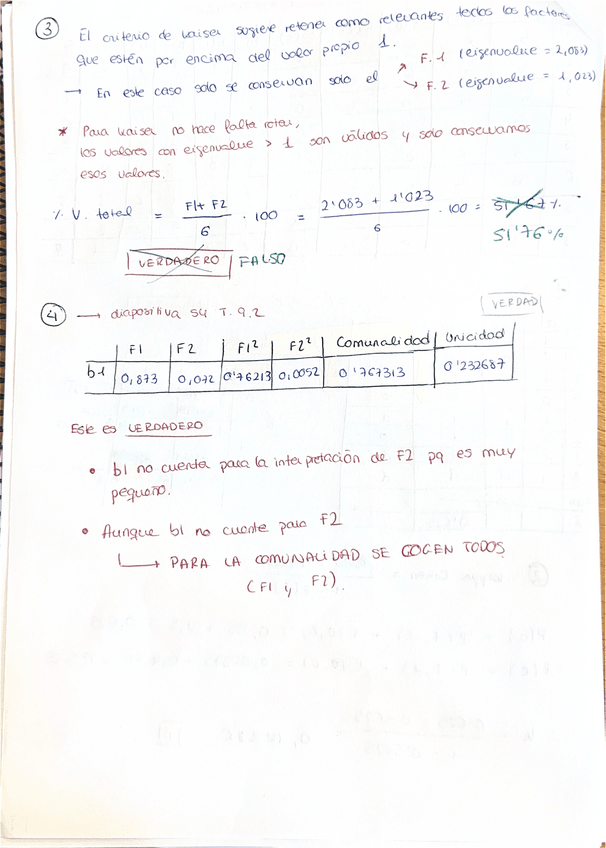 ③ El criterio de Kaiser sugiere retener como relevantes todos los factores
que estén por encima del valor propio 1.
→ En este caso solo se conservan solo el ↗ F.1 (eigenvalue = 2,083)
↘ F.2 (eigenvalue = 1,023)
* Para Kaiser no hace falta rotar,
los valores con eigenvalue > 1 son válidos y solo conservamos
esos valores.
% V. total = F1+F2 / 6 · 100 = 2'083 + 1'023 / 6 · 100 = 51'67 %
51'76 %
VERDADERO FALSO
④ → diapositiva 54 T.9.2 VERDAD
F1 F2 F1² F2² Comunalidad Unicidad
b1 0,873 0,072 0'76213 0,0052 0'767313 0'232687
Este es VERDADERO
• b1 no cuenta para la interpretación de F2 pq es muy
pequeño.
• Aunque b1 no cuente para F2
↳ PARA LA COMUNALIDAD SE COGEN TODOS
(F1 y F2).